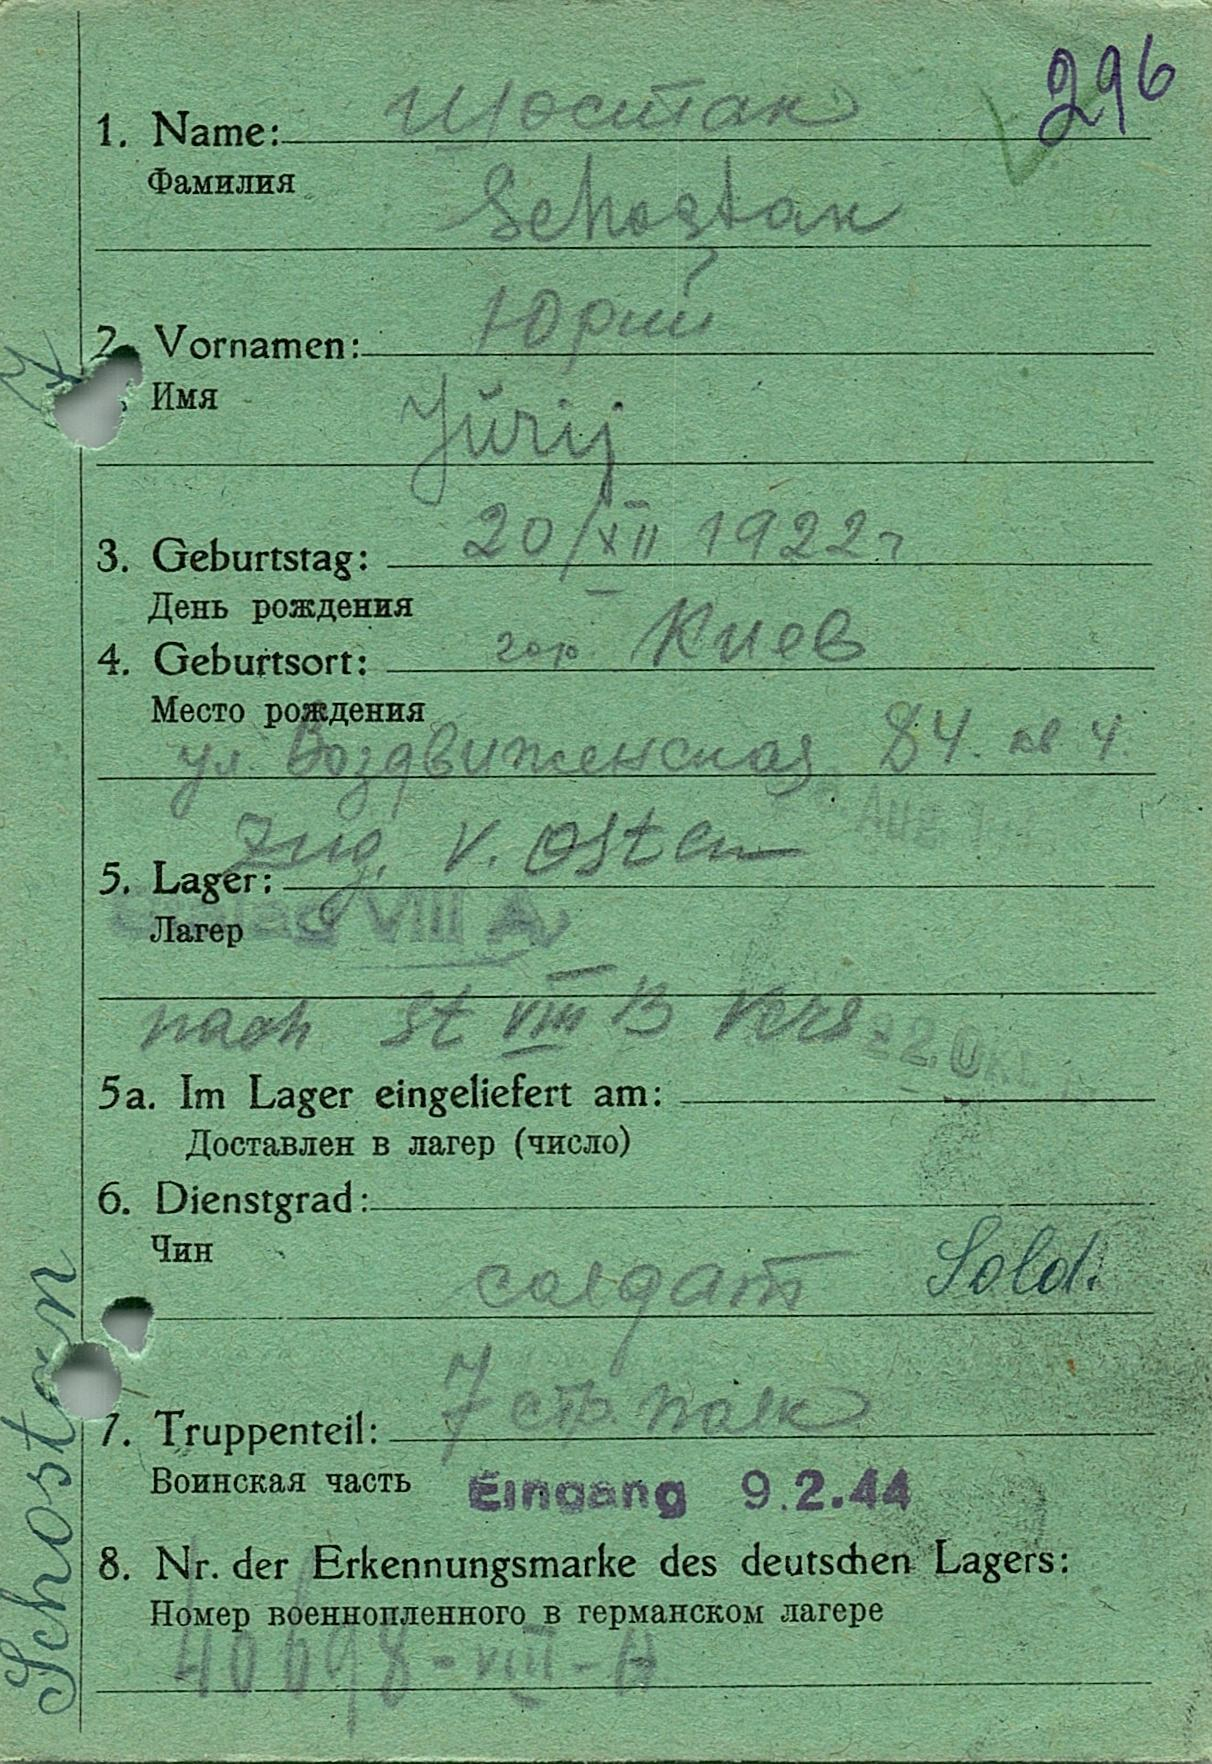 296
1. Name: Шостак
Фамилия
Schostak
2. Vornamen: Юрий
Имя
Jŭrij
3. Geburtstag: 20/XII 1922 г
День рождения
4. Geburtsort: гор. Киев
Место рождения
ул. Воздвиженская 84. кв 4.
Zug. v. Osten
5. Lager: Stalag VIII A
Лагер
nach St VIII B Vers 22. Okt.
5a. Im Lager eingeliefert am:
Доставлен в лагер (число)
6. Dienstgrad:
Чин
солдат Sold.
7. Truppenteil: 7 стр полк
Воинская часть Eingang 9.2.44
8. Nr. der Erkennungsmarke des deutschen Lagers:
Номер военнопленного в германском лагере
40698-VIII-A
Schostan